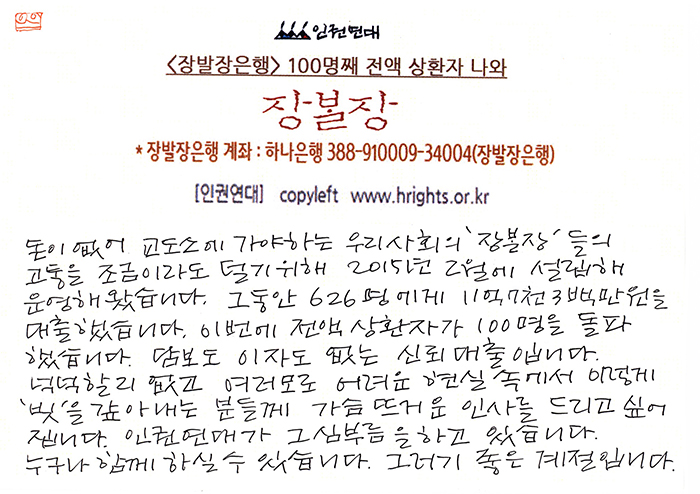 인권연대
<장발장은행> 100명째 전액 상환자 나와
장발장
* 장발장은행 계좌 : 하나은행 388-910009-34004(장발장은행)
[인권연대] copyleft www.hrights.or.kr
돈이 없어 교도소에 가야하는 우리사회의 '장발장' 들의
고통을 조금이라도 덜기위해 2015년 2월에 설립해
운영해왔습니다. 그동안 626명에게 11억7천3백만원을
대출했습니다. 이번에 전액상환자가 100명을 돌파
했습니다. 담보도 이자도 없는 신뢰대출입니다.
넉넉할리 없고 여러모로 어려운 현실 속에서 이렇게
'빚'을 갚아내는 분들께 가슴 뜨거운 인사를 드리고 싶어
집니다. 인권연대가 그심부름을하고 있습니다.
누구나 함께 하실 수 있습니다. 그러기 좋은 계절입니다.